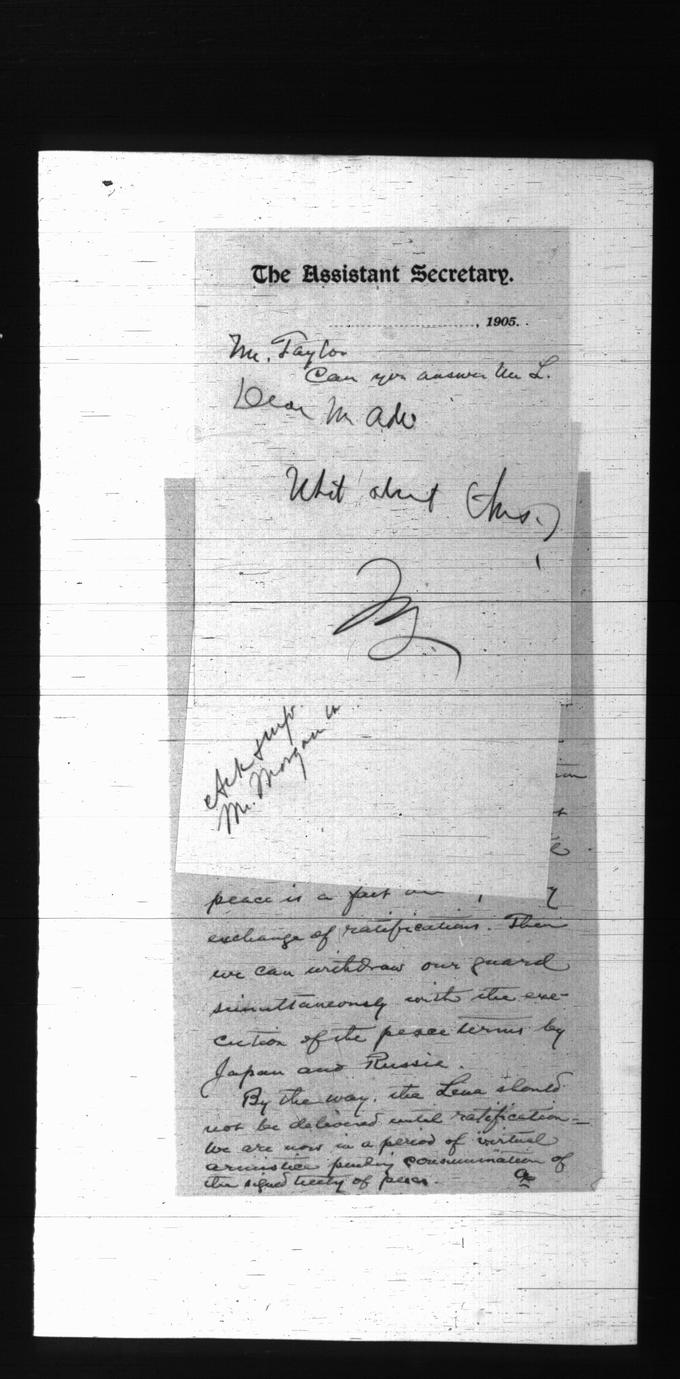 The Assistant Secretary.
, 1905.
Mr. Taylor
Can you answer Mr L.
Dear Mr Ade
What about this?
Ack & inf.
Mr. Morgan
peace is a fact
exchange of ratifications. Then
we can withdraw our guard
simultaneously with the exe-
cution of the peace terms by
Japan and Russia.
By the way, the Lena should
not be delivered until ratification—
We are now in a period of virtual
armistice pending consummation of
the signed treaty of peace.